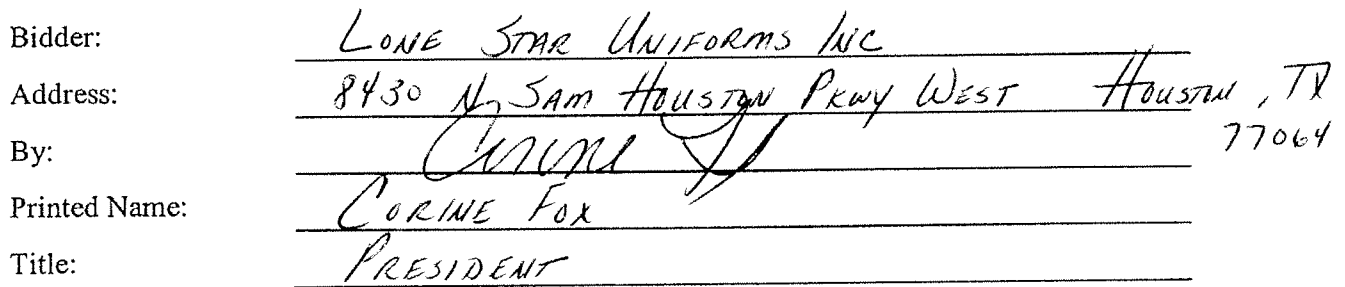 Bidder: LONE STAR UNIFORMS INC
Address: 8430 N SAM HOUSTON PKWY WEST HOUSTON, TX
77064
By: Corine Fox
Printed Name: CORINE FOX
Title: PRESIDENT